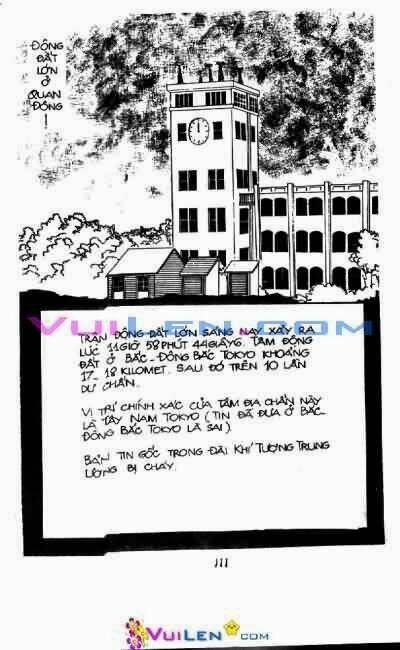 ĐỘNG
ĐẤT
LỚN
Ở
QUAN
ĐÔNG
!
VuiLen.com
TRẬN ĐỘNG ĐẤT LỚN SÁNG NAY XẢY RA
LÚC 11GIỜ 58PHÚT 44GIÂY6. TÂM ĐỘNG
ĐẤT Ở BẮC-ĐÔNG BẮC TOKYO KHOẢNG
17-18 KILOMET. SAU ĐÓ TRÊN 10 LẦN
DƯ CHẤN.
VỊ TRÍ CHÍNH XÁC CỦA TÂM ĐỊA CHẤN NÀY
LÀ TÂY NAM TOKYO (TIN ĐÃ ĐƯA Ở BẮC-
ĐÔNG BẮC TOKYO LÀ SAI)
BẢN TIN GỐC TRONG ĐÀI KHÍ TƯỢNG TRUNG
ƯƠNG BỊ CHÁY.
111
VuiLen.com